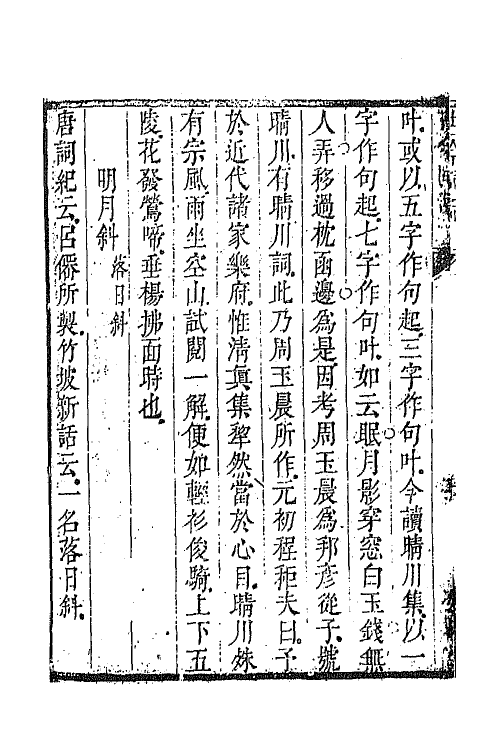 叶或以五字作句起三字作句叶今讀晴川集以一
字作句起七字作句叶如云眠月影穿窓白玉錢無
人弄移過枕函邊為是因考周玉晨為邦彥從子號
晴川有晴川詞此乃周玉晨所作元初程秬夫曰予
於近代諸家樂府惟淸眞集犂然當於心目晴川殊
有宗風雨坐空山試閱一解便如輕衫俊騎上下五
陵花發鶯啼垂楊拂面時也
明月斜 落日斜
唐詞紀云呂僊所製竹坡新話云一名落日斜